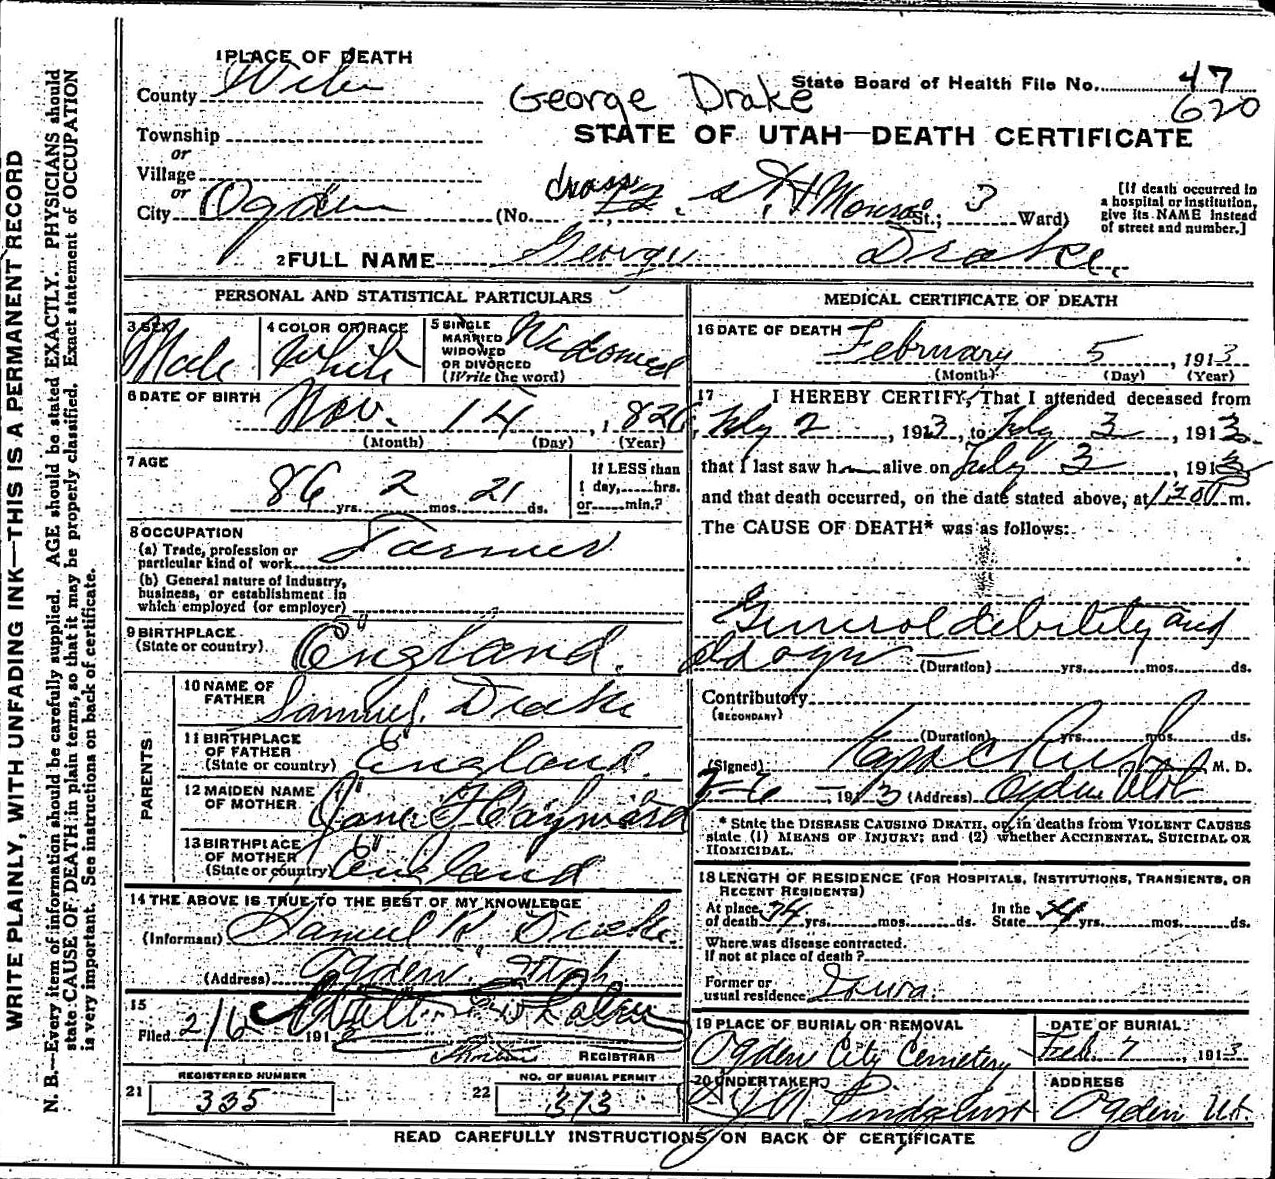 WRITE PLAINLY, WITH UNFADING INK—THIS IS A PERMANENT RECORD
N. B.—Every item of information should be carefully supplied. AGE should be stated EXACTLY. PHYSICIANS should
state CAUSE OF DEATH in plain terms, so that it may be properly classified. Exact statement of OCCUPATION
is very important. See instructions on back of certificate.
1 PLACE OF DEATH
County Weber
Township
or
Village
or
City Ogden
George Drake
State Board of Health File No. 47
620
STATE OF UTAH—DEATH CERTIFICATE
(No. St.; 3 Ward)
[If death occurred in
a hospital or institution,
give its NAME instead
of street and number.]
2 FULL NAME George Drake.
PERSONAL AND STATISTICAL PARTICULARS
3 SEX Male
4 COLOR OR RACE White
5 SINGLE
MARRIED
WIDOWED
OR DIVORCED
(Write the word)
Widowed
6 DATE OF BIRTH
Nov. 14, 1826
(Month) (Day) (Year)
7 AGE
86 yrs. 2 mos. 21 ds.
If LESS than
1 day, hrs.
or min.?
8 OCCUPATION
(a) Trade, profession or
particular kind of work Farmer
(b) General nature of industry,
business, or establishment in
which employed (or employer)
9 BIRTHPLACE
(State or country) England.
PARENTS
10 NAME OF
FATHER Samuel Drake
11 BIRTHPLACE
OF FATHER
(State or country) England.
12 MAIDEN NAME
OF MOTHER Jane Hayward
13 BIRTHPLACE
OF MOTHER
(State or country) England
14 THE ABOVE IS TRUE TO THE BEST OF MY KNOWLEDGE
(Informant) Samuel R Drake.
(Address) Ogden Utah.
15
Filed 2/6 1913
REGISTRAR
REGISTERED NUMBER
21 335
NO. OF BURIAL PERMIT
22 373
MEDICAL CERTIFICATE OF DEATH
16 DATE OF DEATH
February 5, 1913
(Month) (Day) (Year)
17 I HEREBY CERTIFY, That I attended deceased from
Feby 2, 1913, to Feby 3, 1913
that I last saw h alive on Feby 3, 1913
and that death occurred, on the date stated above, at m.
The CAUSE OF DEATH* was as follows:
General debility and
old age
(Duration) yrs. mos. ds.
Contributory
(SECONDARY)
(Duration) yrs. mos. ds.
(Signed) M. D.
2-6, 1913 (Address) Ogden Utah
* State the DISEASE CAUSING DEATH, or, in deaths from VIOLENT CAUSES
state (1) MEANS OF INJURY; and (2) whether ACCIDENTAL, SUICIDAL OR
HOMICIDAL.
18 LENGTH OF RESIDENCE (FOR HOSPITALS, INSTITUTIONS, TRANSIENTS, OR
RECENT RESIDENTS)
At place
of death 34 yrs. mos. ds.
In the
State 34 yrs. mos. ds.
Where was disease contracted.
If not at place of death?
Former or
usual residence Iowa.
19 PLACE OF BURIAL OR REMOVAL
Ogden City Cemetery
DATE OF BURIAL
Feb. 7, 1913
20 UNDERTAKER
ADDRESS
Ogden Ut.
READ CAREFULLY INSTRUCTIONS ON BACK OF CERTIFICATE